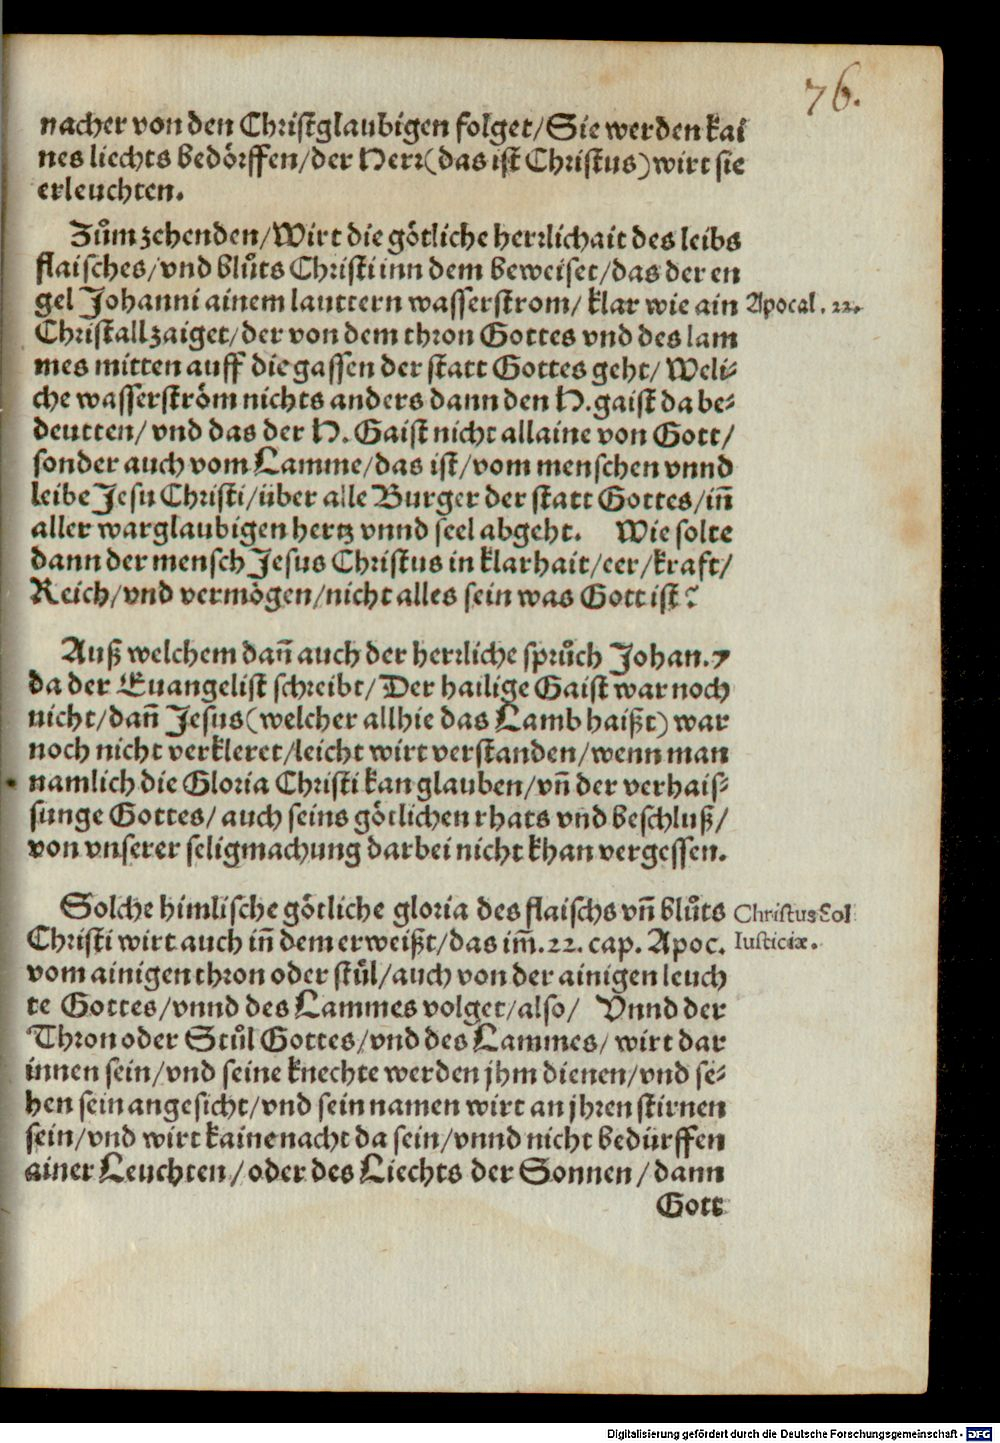 76.
nacher von den Christglaubigen folget/Sie werden kai
nes liechts bedörffen/der Herr(das ist Christus)wirt sie
erleuchten.
Zům zehenden/Wirt die götliche herrlichait des leibs
flaisches/vnd blůts Christi inn dem beweiset/das der en
gel Johanni ainem lauttern wasserstrom/ klar wie ain
Apocal. 22.
Christall zaiget/der von dem thron Gottes vnd des lam
mes mitten auff die gassen der statt Gottes geht/ Weli-
che wasserström nichts anders dann den H.gaist da be-
deutten/ vnd das der H. Gaist nicht allaine von Gott/
sonder auch vom Lamme/das ist/vom menschen vnnd
leibe Jesu Christi/über alle Burger der statt Gottes/iñ
aller warglaubigen hertz vnnd seel abgeht. Wie solte
dann der mensch Jesus Christus in klarhait/eer/kraft/
Reich/vnd vermögen/nicht alles sein was Gott ist?
Auß welchem dañ auch der herrliche sprůch Johan.7
da der Euangelist schreibt/Der hailige Gaist war noch
nicht/dañ Jesus(welcher allhie das Lamb haißt) war
noch nicht verkleret/leicht wirt verstanden/wenn man
namlich die Gloria Christi kan glauben/vñ der verhais-
sunge Gottes/ auch seins götlichen rhats vnd beschluß/
von vnserer seligmachung darbei nicht khan vergessen.
Solche himlische götliche gloria des flaischs vñ blůts
Christus Sol
Christi wirt auch iñ dem erweißt/das im̃.22. cap. Apoc.
Iusticiæ.
vom ainigen thron oder stůl/auch von der ainigen leuch
te Gottes/vnnd des Lammes volget/also/ Vnnd der
Thron oder Stůl Gottes/vnd des Lammes/ wirt dar
innen sein/vnd seine knechte werden jhm dienen/vnd se-
hen sein angesicht/vnd sein namen wirt an jhren stirnen
sein/vnd wirt kaine nacht da sein/vnnd nicht bedürffen
ainer Leuchten/oder des Liechts der Sonnen/dann
Gott
Digitalisierung gefördert durch die Deutsche Forschungsgemeinschaft - DFG